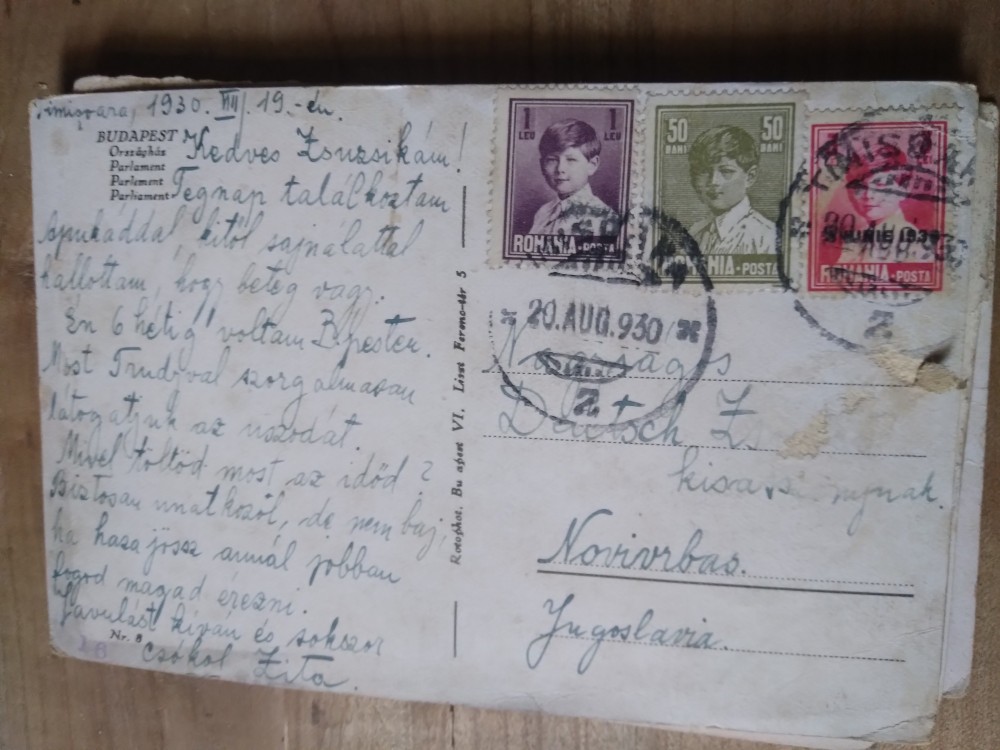 Timișoara, 1930. VIII. 19.-én.
BUDAPEST
Országház
Parlament
Parlement
Parliament
Kedves Zsuzsikám!
Tegnap találkoztam
Apukáddal kitől sajnálattal
hallottam, hogy beteg vagy.
Én 6 hétig voltam B.pesten.
Most Trudyval szorgalmasan
látogatjuk az uszodát.
Mivel töltöd most az időd?
Biztosan unatkozol, de nem baj,
ha haza jössz annál jobban
fogod magad érezni.
Javulást kíván és sokszor
Nr. 8
csókol Zita.
Rotophot. Bu apest VI. Liszt Ferenc-tér 5
1 LEU 1 LEU
ROMÂNIA-POSTA
50 BANI 50 BANI
ROMÂNIA-POSTA
ROMÂNIA-POSTA
20.AUG.930
2
TIMIȘOARA
20.AUG.930
2
Nagyságos
Deutsch Zs
kisasszonynak.
Novivrbas.
Jugoslavia.